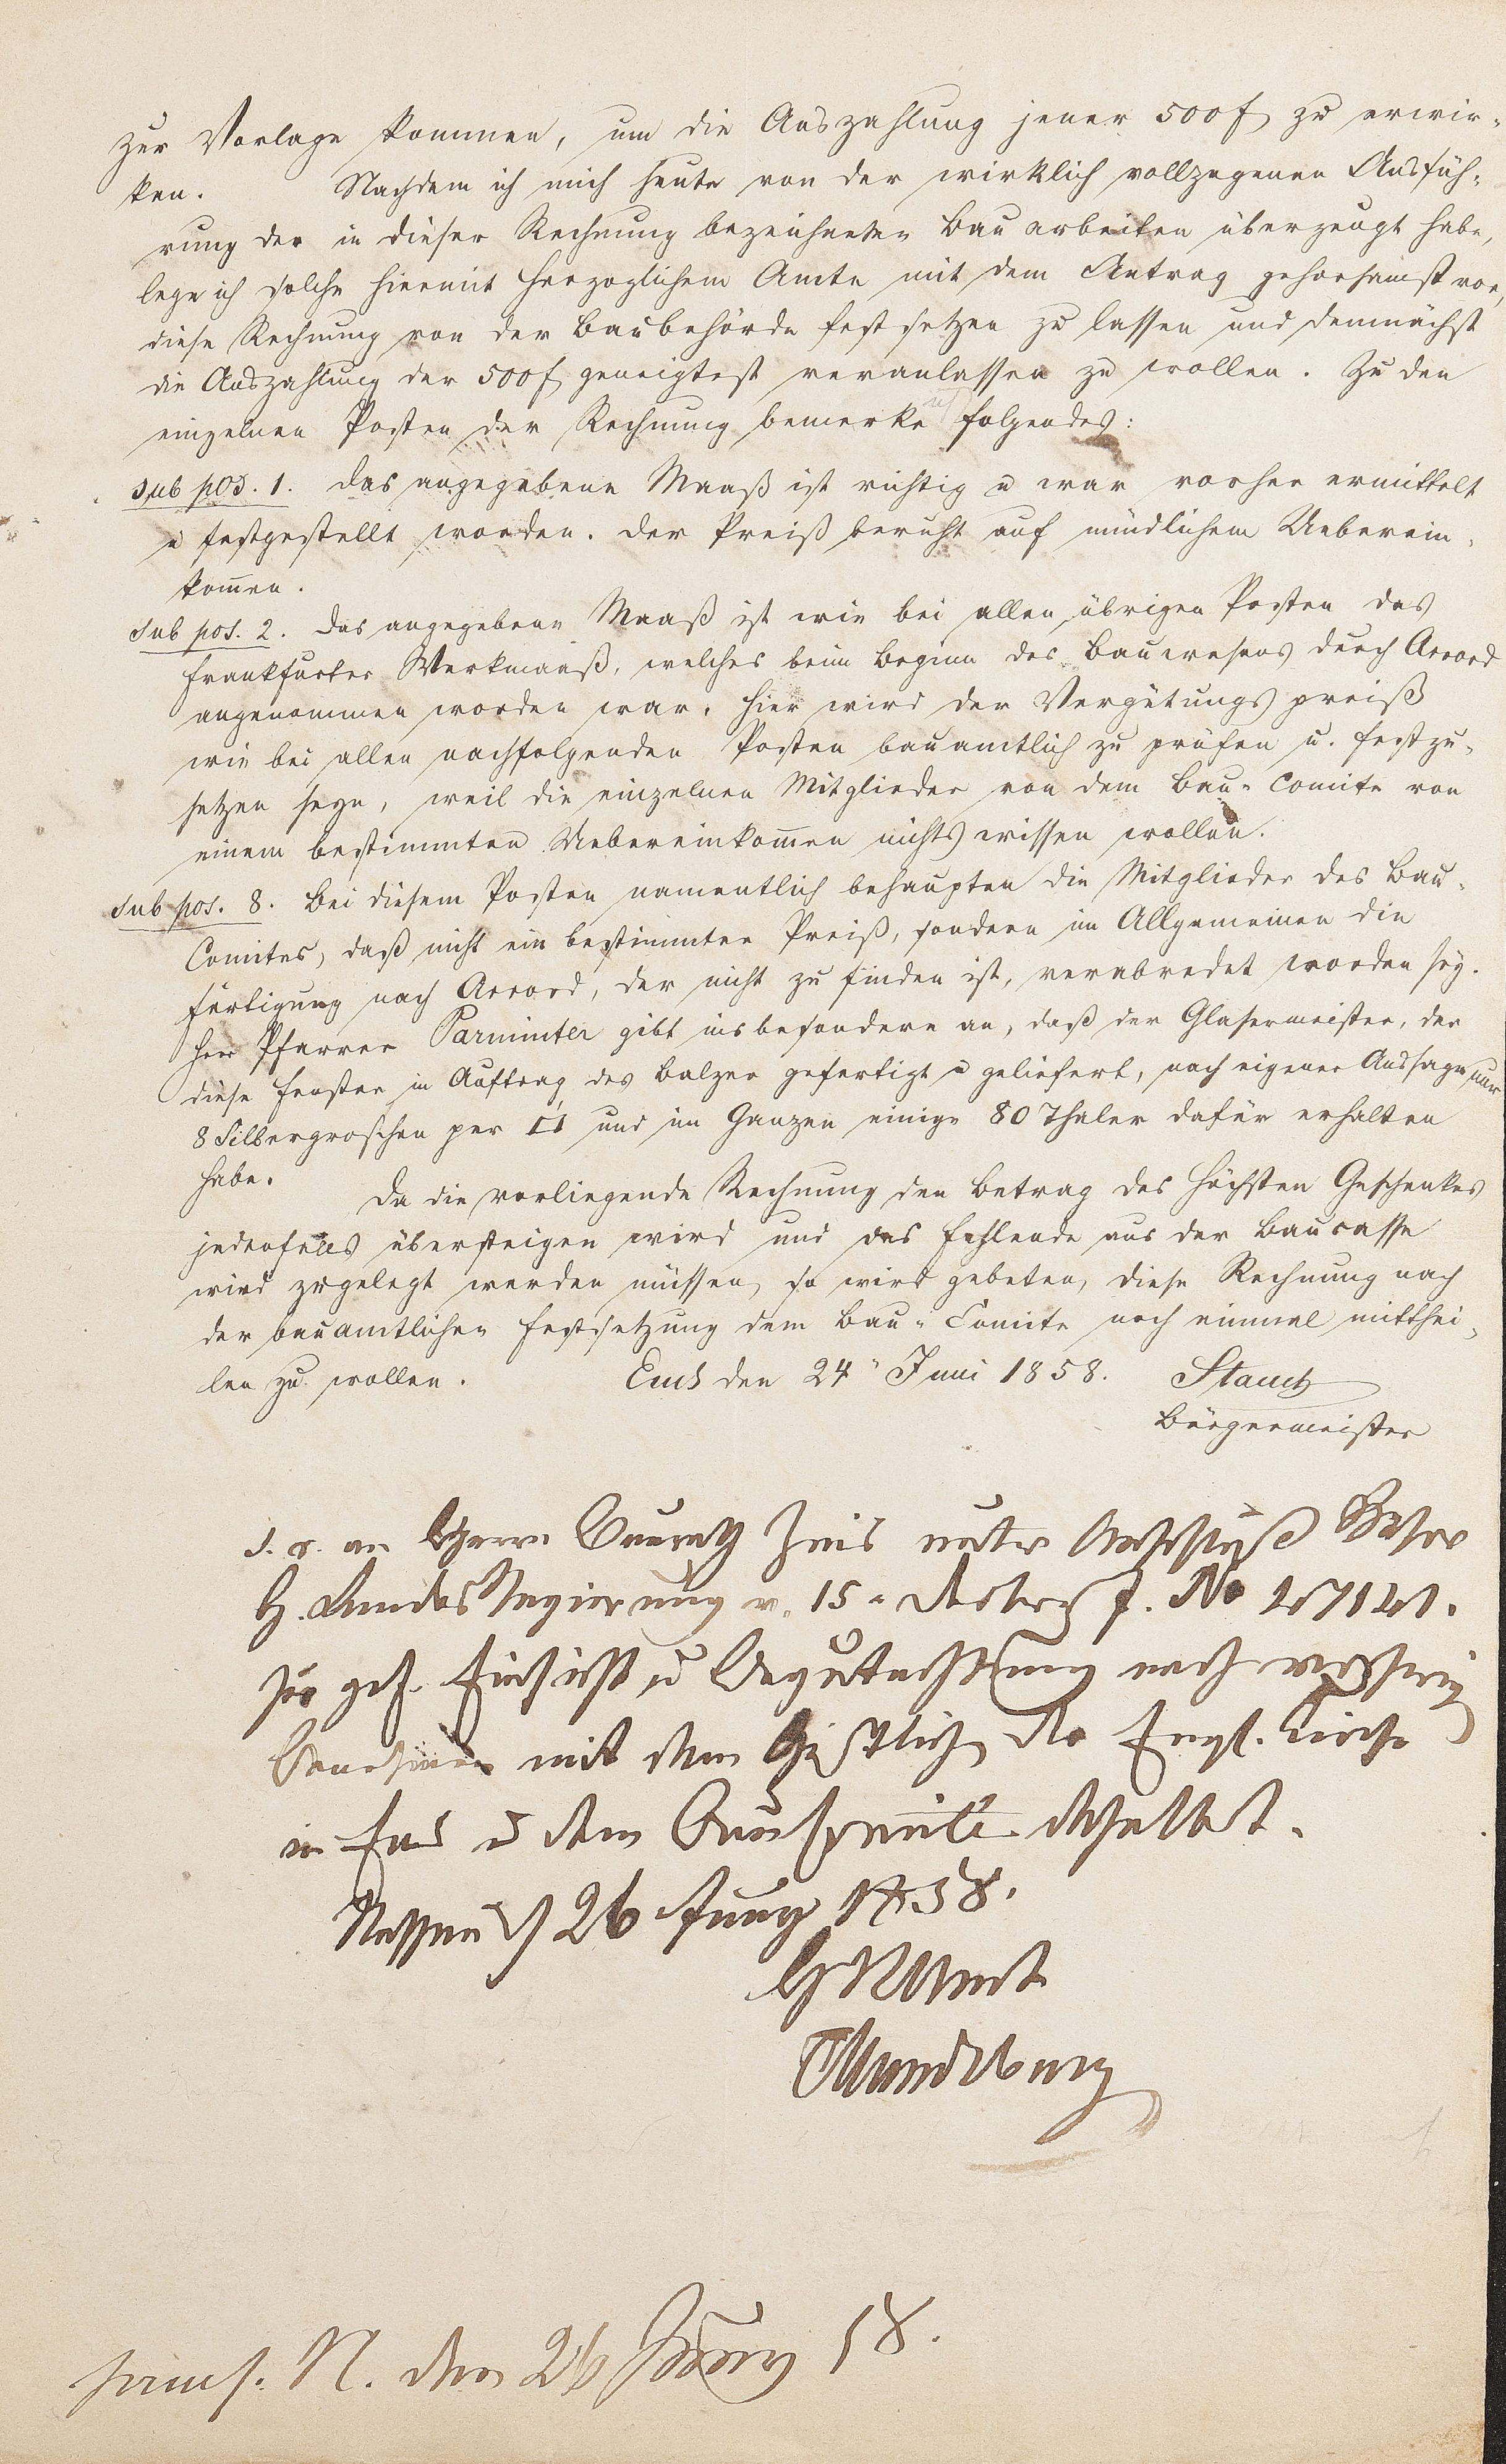 zur Vorlage kommen, um die Auszahlung jener 500 f zu erwir-
ken. Nachdem ich mich heute von der wirklich vollzogenen Ausfüh-
rung der in dieser Rechnung bezeichneten Bauarbeiten überzeugt habe,
lege ich solche hiermit Herzoglichem Amte mit dem Antrag gehorsamst vor,
diese Rechnung von der Baubehörde festsetzen zu lassen und demnächst
die Auszahlung der 500 f geneigtest veranlassen zu wollen. Zu den
einzelnen Posten der Rechnung bemerke ich folgendes:
sub pos. 1. Das angegebene Maaß ist richtig u war vorher ermittelt
u festgestellt worden. Der Preiß beruht auf mündlichem Ueberein-
kom̄en.
sub pos. 2. Das angegebene Maaß ist wie bei allen übrigen Posten das
Frankfurter Werkmaaß, welches beim Beginn des Bauwesens durch Accord
angenommen worden war. Hier wird der Vergütungspreiß
wie bei allen nachfolgenden Posten bauamtlich zu prüfen u. festzu-
setzen seyn, weil die einzelnen Mitglieder von dem Bau-Comite von
einem bestimmten Uebereinkom̄en nichts wissen wollen.
sub pos. 8. Bei diesem Posten namentlich behaupten die Mitglieder des Bau-
Comites, daß nicht ein bestimmter Preiß, sondern im Allgemeinen die
Fertigung nach Accord, der nicht zu finden ist, verabredet worden sey.
Herr Pfarrer Parminter gibt insbesondere an, daß der Glasermeister, der
diese Fenster in Auftrag des Balzer gefertigt u geliefert, nach eigener Aussage nur
8 Silbergroschen per □' und im Ganzen einige 80 Thaler dafür erhalten
habe.
Da die vorliegende Rechnung den Betrag des Höchsten Geschenkes
jedenfalls übersteigen wird und das Fehlende aus der Baucasse
wird zugelegt werden müssen, so wird gebeten, diese Rechnung nach
der bauamtlichen Festsetzung dem Bau-Comite noch einmal mitthei-
len zu wollen. Ems den 24" Juni 1858. Stauch
Bürgermeister
s. r. an Herrn Baurath unter Anschluß
H. Landes Regierung v. 15
zur gef. Einsicht u Begutachtung nach vorherig
mit dem Geistlichen der Engl. Kirche
in Ems u dem Baucomité daselbst.
Nassau d 26 Juny 1858.
H N Amt
praes. N. den 26 Juny 58.